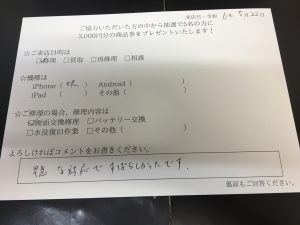 来店日：令和 6年 5月22日
ご協力いただいた方の中から抽選で5名の方に
3,000円分の商品券をプレゼントいたします！
☆ご来店目的は
☑修理 □買取 □再修理 □相談
☆機種は
iPhone（ ）Android（ ）
iPad（ ）その他（ ）
☆ご修理の場合、修理内容は
☑画面交換修理 □バッテリー交換
□水没復旧作業 □その他（ ）
よろしければコメントをお書きください。
な対応で すばらしかったです。
裏面もご回答ください。